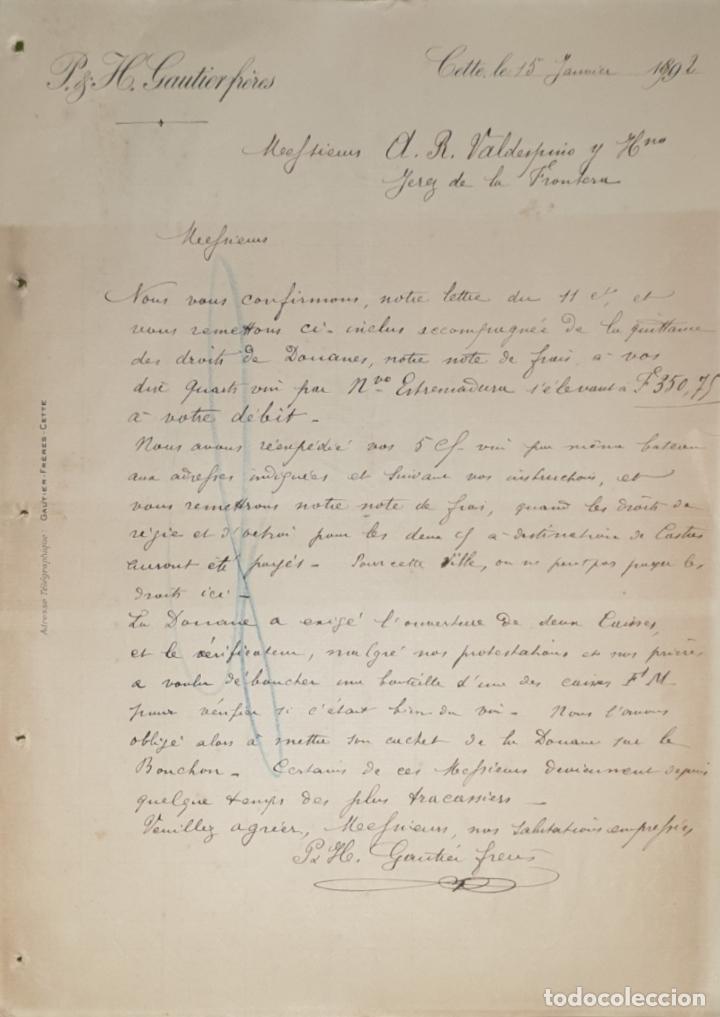 P. & H. Gautier frères
Cette, le 15 Janvier 1892
Messieurs A. R. Valdespino y Hno
Jerez de la Frontera
Messieurs
Nous vous confirmons, notre lettre du 11 ct, et
vous remettons ci-inclus accompagnée de la quittance
des droits de Douanes, notre note de frais à vos
dix quarts vin par Nvo Estremadura s'élevant à F 350,75
à votre débit -
Nous avons réexpédié vos 5 Cs vin par même bateau
aux adresses indiquées et suivant vos instructions, et
vous remettrons notre note de frais, quand les droits de
régie et d'octroi pour les deux cs à destination de Castres
auront été payés - Pour cette Ville, on ne peut pas payer les
droits ici -
La Douane a exigé l'ouverture de deux Caisses,
et le vérificateur, malgré nos protestations et nos prières
a voulu déboucher une bouteille d'une des caisses F M
pour vérifier si c'était bien du vin - Nous l'avons
obligé alors à mettre son cachet de la Douane sur le
Bouchon - Certains de ces Messieurs deviennent depuis
quelque temps des plus tracassiers -
Veuillez agréer, Messieurs, nos salutations empressées
P & H. Gautier frères
Adresse Télégraphique: GAUTIER-FRÈRES-CETTE
todocoleccion